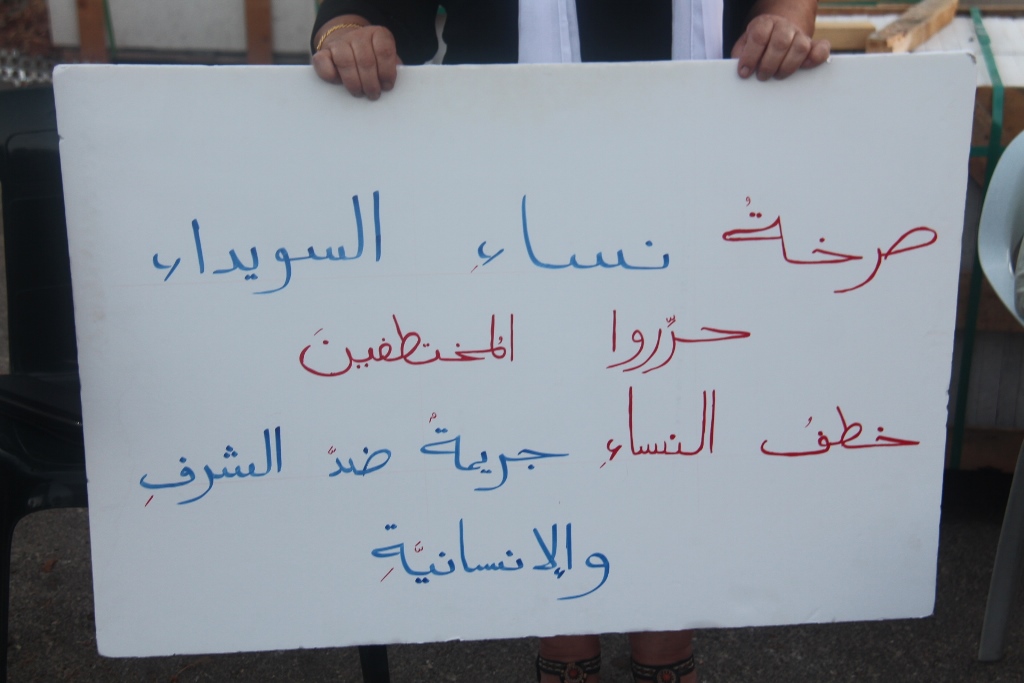 صرخةُ نساءِ السويداءِ
حرِّروا المُختطفينَ
خطفُ النساءِ جريمةٌ ضدَّ الشرفِ
والإنسانيَّةِ